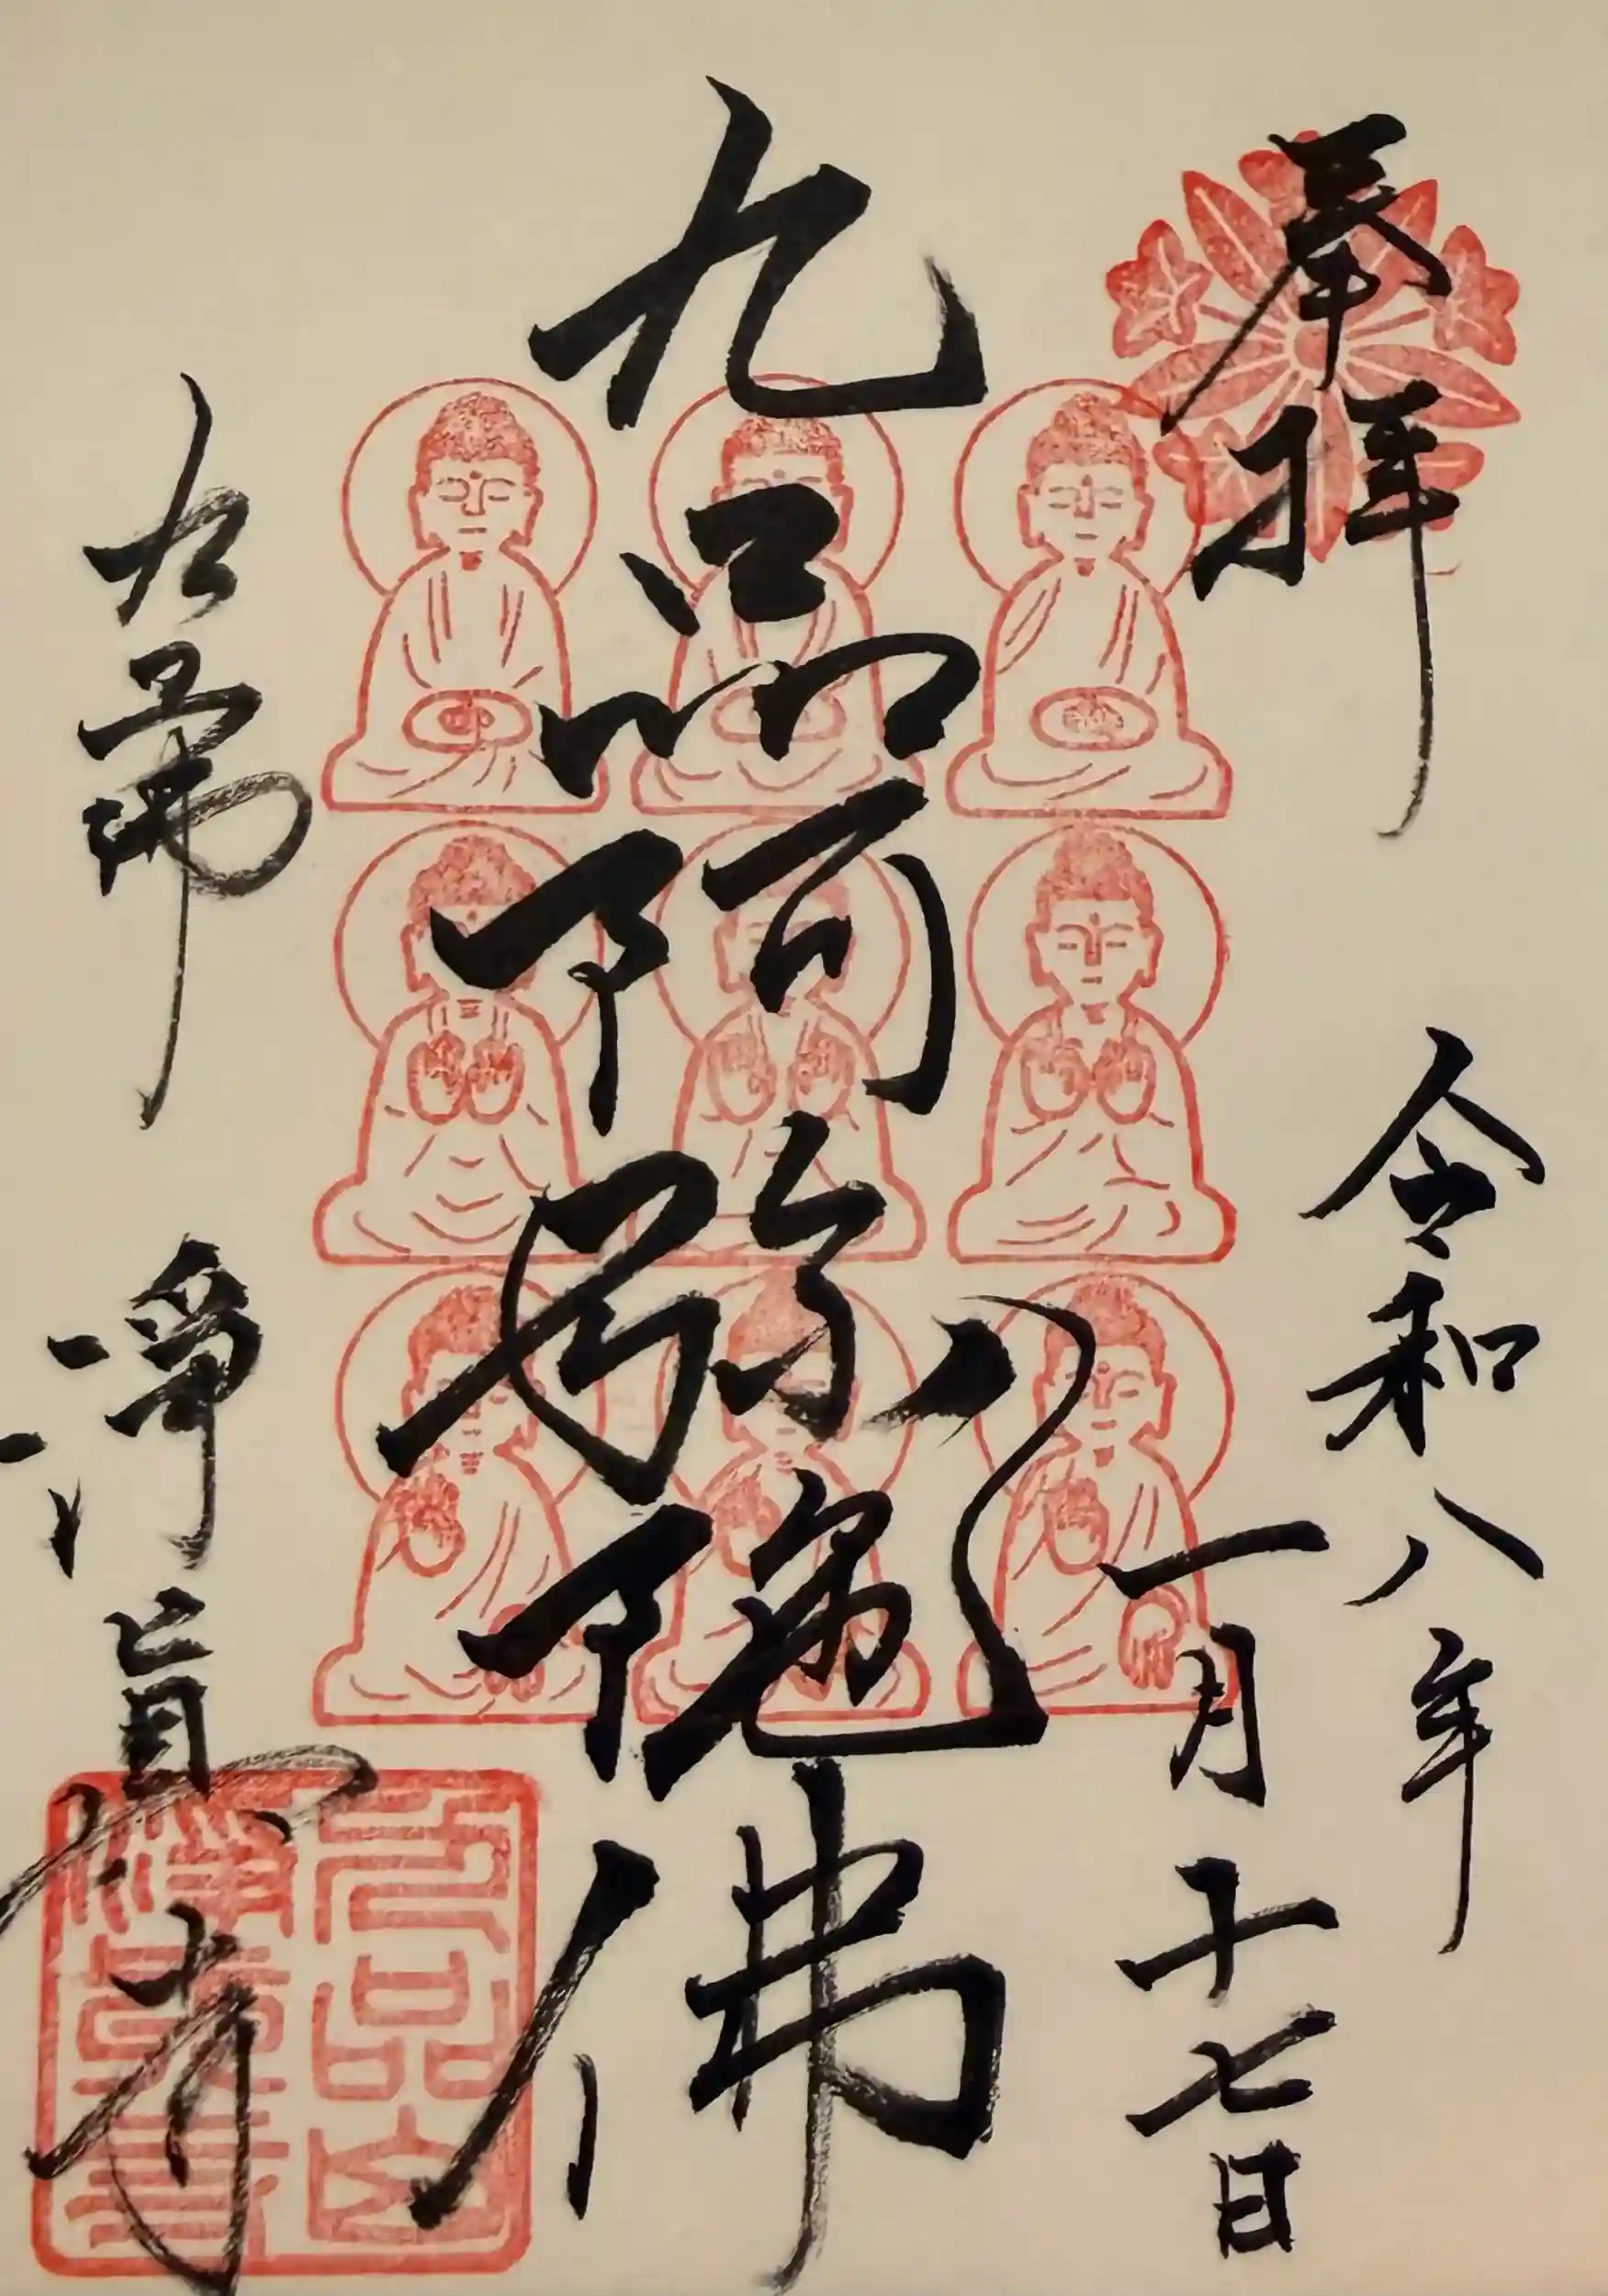 奉拝
令和八年
一月十七日
九品阿弥陀佛
九品佛 淨眞寺
九品山
淨眞寺